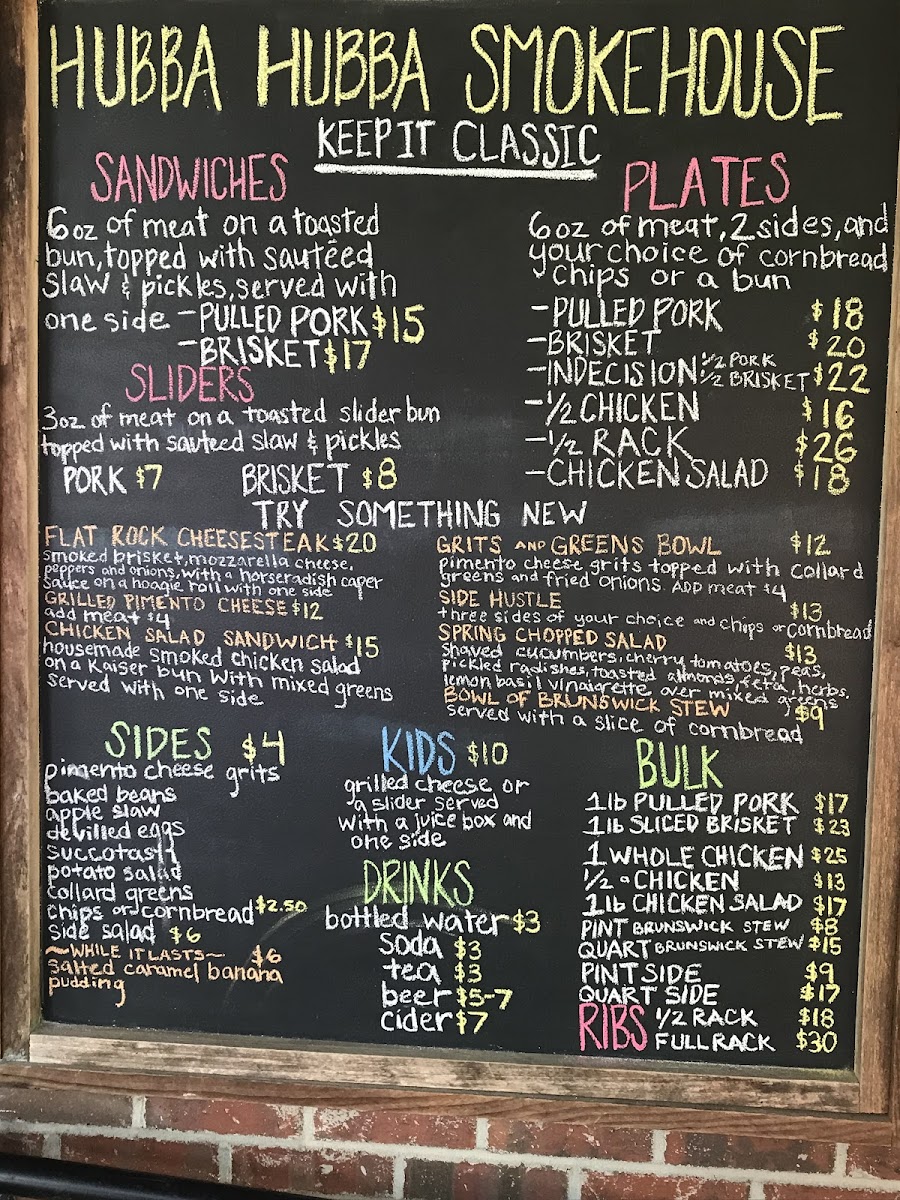 HUBBA HUBBA SMOKEHOUSE
KEEP IT CLASSIC
SANDWICHES
6oz of meat on a toasted
bun, topped with sautéed
slaw & pickles, served with
one side - PULLED PORK $15
- BRISKET $17
SLIDERS
3oz of meat on a toasted slider bun
topped with sauteed slaw & pickles
PORK $7 BRISKET $8
PLATES
6oz of meat, 2 sides, and
your choice of cornbread
chips or a bun
- PULLED PORK $18
- BRISKET $20
- INDECISION 1/2 PORK 1/2 BRISKET $22
- 1/2 CHICKEN $16
- 1/2 RACK $26
- CHICKEN SALAD $18
TRY SOMETHING NEW
FLAT ROCK CHEESESTEAK $20
smoked brisket, mozzarella cheese,
peppers and onions, with a horseradish caper
sauce on a hoagie roll with one side
GRILLED PIMENTO CHEESE $12
add meat $4
CHICKEN SALAD SANDWICH $15
housemade smoked chicken salad
on a Kaiser bun with mixed greens
served with one side
GRITS AND GREENS BOWL $12
pimento cheese grits topped with collard
greens and fried onions. ADD meat $4
SIDE HUSTLE $13
three sides of your choice and chips or cornbread
SPRING CHOPPED SALAD $13
shaved cucumbers, cherry tomatoes, peas,
pickled radishes, toasted almonds, feta, herbs,
lemon basil vinaigrette over mixed greens
BOWL OF BRUNSWICK STEW $9
served with a slice of cornbread
SIDES $4
pimento cheese grits
baked beans
apple slaw
devilled eggs
succotash
potato salad
collard greens
chips or cornbread $2.50
side salad $6
~WHILE IT LASTS~ $6
salted caramel banana
pudding
KIDS $10
grilled cheese or
a slider served
with a juice box and
one side
DRINKS
bottled water $3
soda $3
tea $3
beer $5-7
cider $7
BULK
1lb PULLED PORK $17
1lb SLICED BRISKET $23
1 WHOLE CHICKEN $25
1/2 a CHICKEN $13
1lb CHICKEN SALAD $17
PINT BRUNSWICK STEW $8
QUART BRUNSWICK STEW $15
PINT SIDE $9
QUART SIDE $17
RIBS 1/2 RACK $18
FULL RACK $30